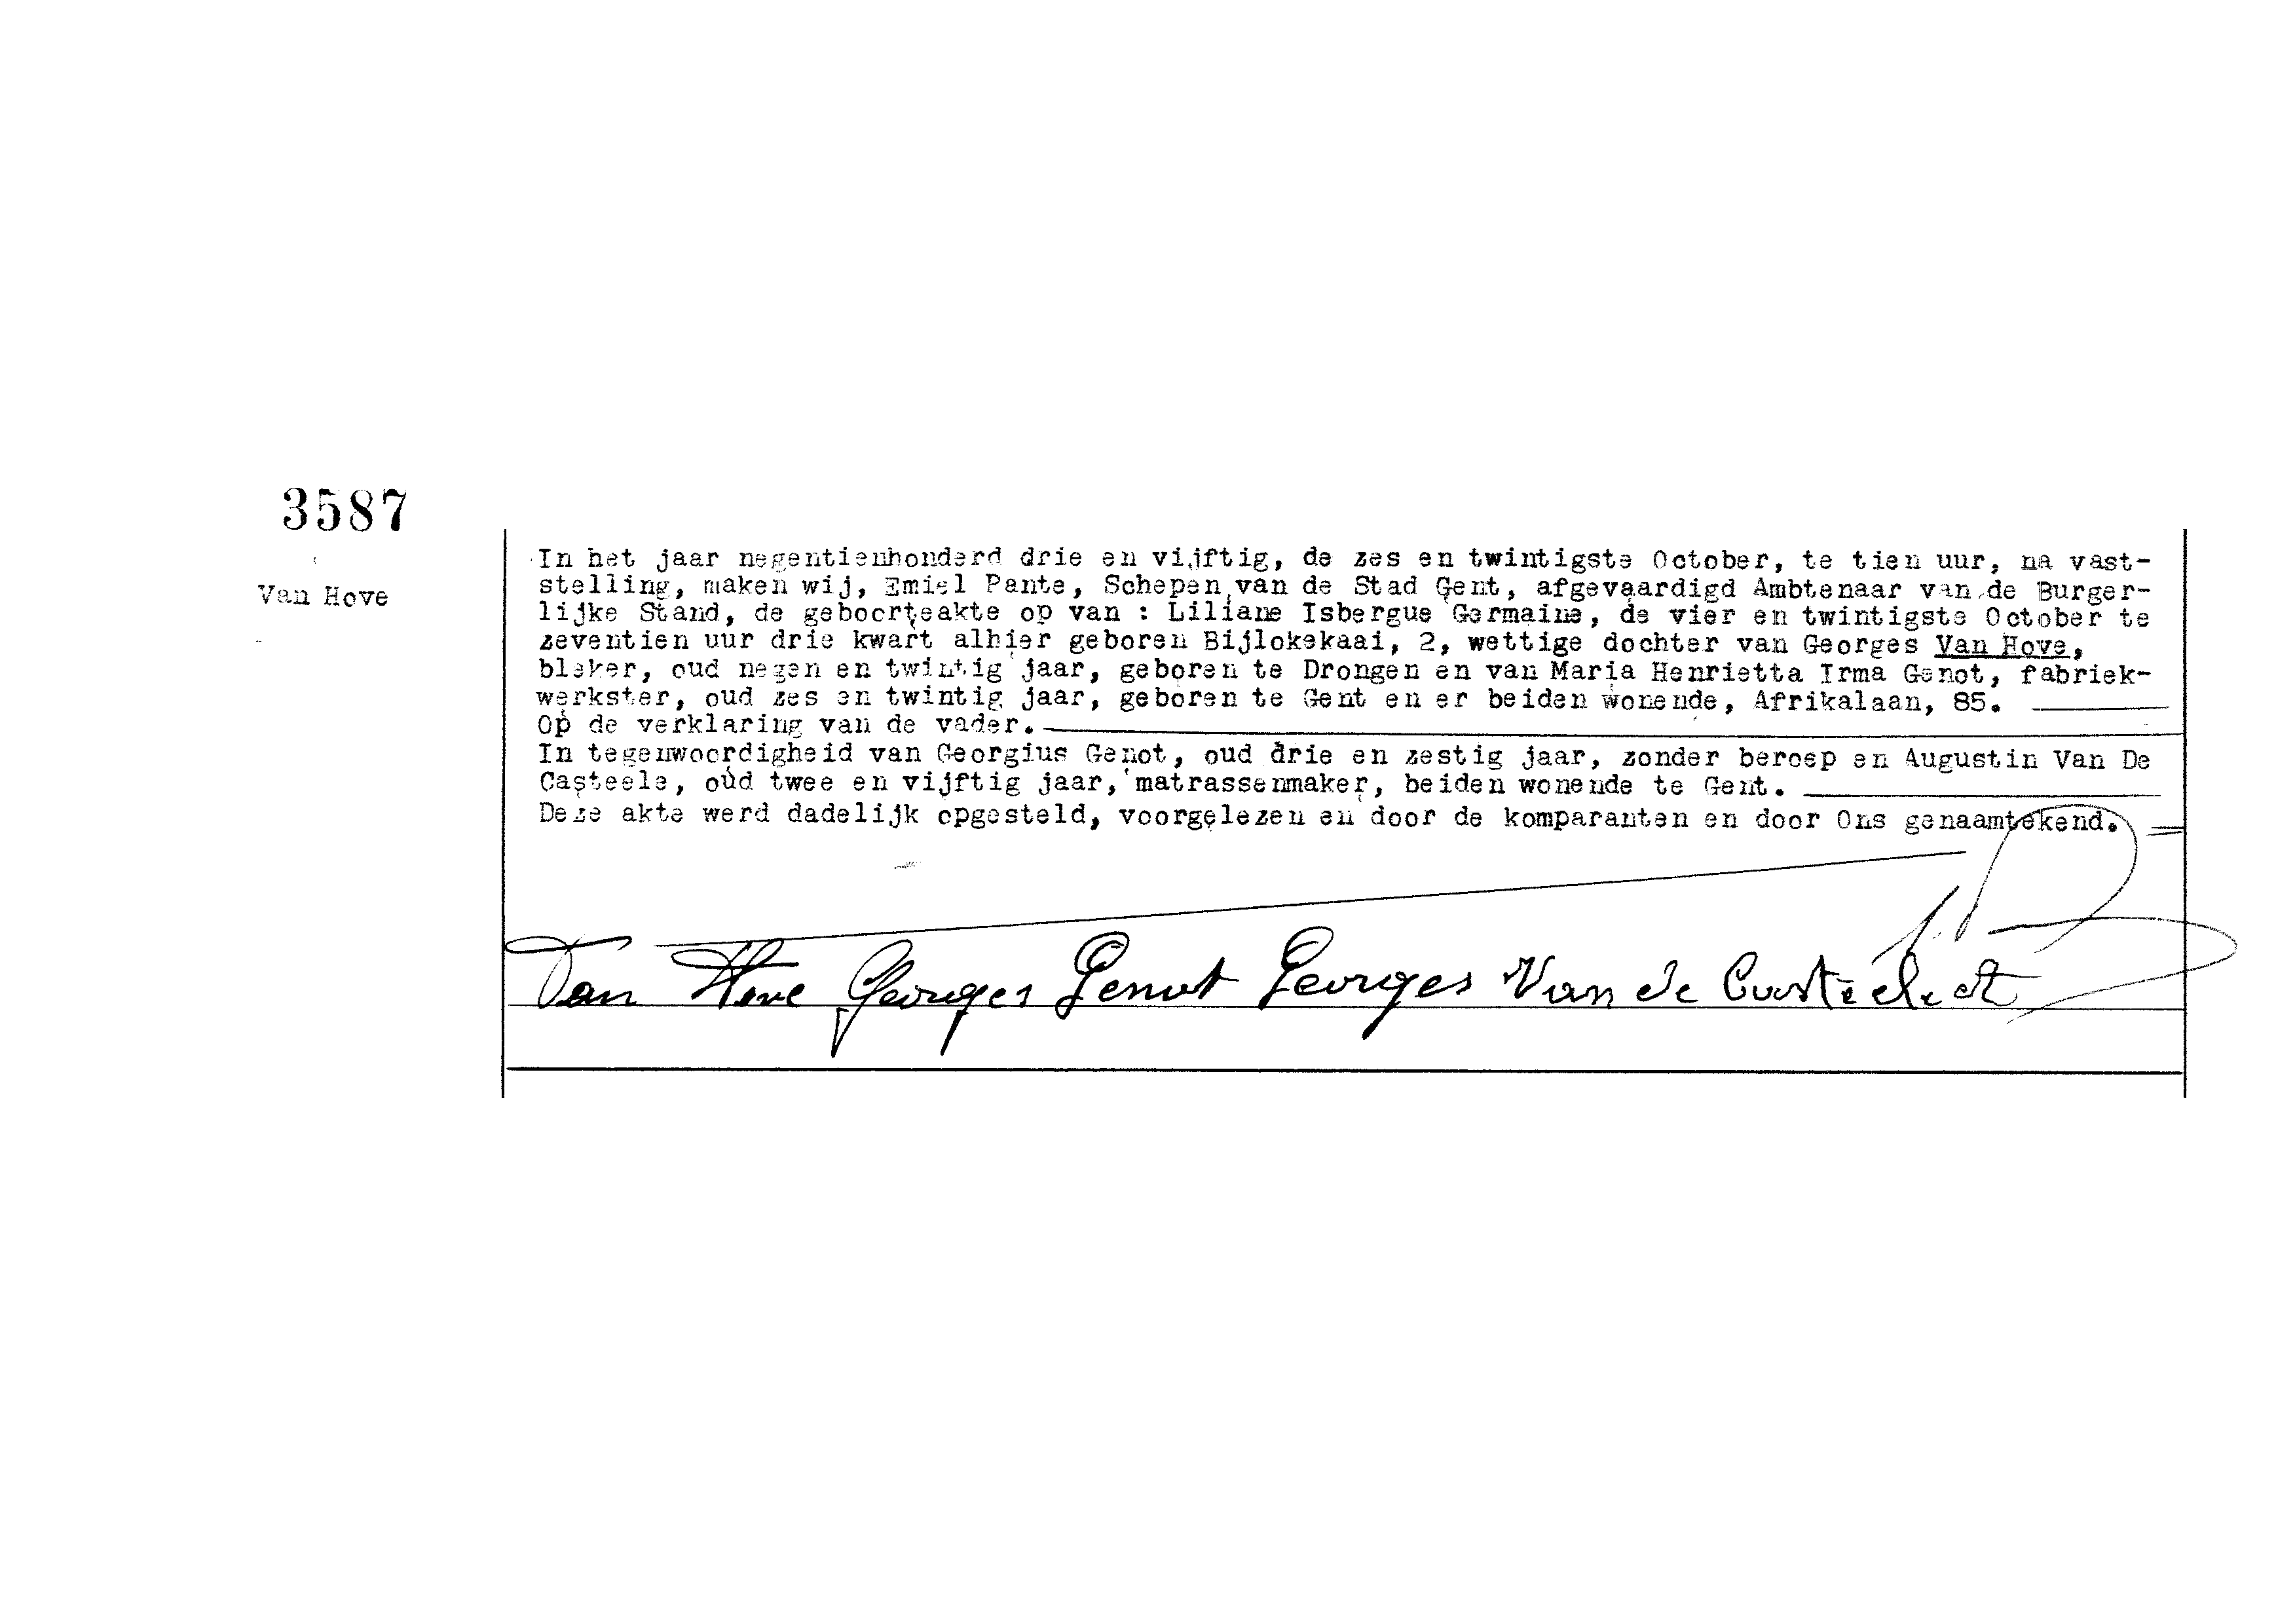 3587
Van Hove
In het jaar negentienhonderd drie en vijftig, de zes en twintigste October, te tien uur, na vast-
stelling, maken wij, Emiel Pante, Schepen van de Stad Gent, afgevaardigd Ambtenaar van de Burger-
lijke Stand, de geboorteakte op van : Liliane Isbergue Germaine, de vier en twintigste October te
zeventien uur drie kwart alhier geboren Bijlokekaai, 2, wettige dochter van Georges Van Hove,
bleker, oud negen en twintig jaar, geboren te Drongen en van Maria Henrietta Irma Genot, fabriek-
werkster, oud zes en twintig jaar, geboren te Gent en er beiden wonende, Afrikalaan, 85.
Op de verklaring van de vader.
In tegenwoordigheid van Georgius Genot, oud drie en zestig jaar, zonder beroep en Augustin Van De
Casteele, oud twee en vijftig jaar, matrassenmaker, beiden wonende te Gent.
Deze akte werd dadelijk opgesteld, voorgelezen en door de komparanten en door Ons genaamtekend.
Van Hove Georges Genot Georges Van de Casteele